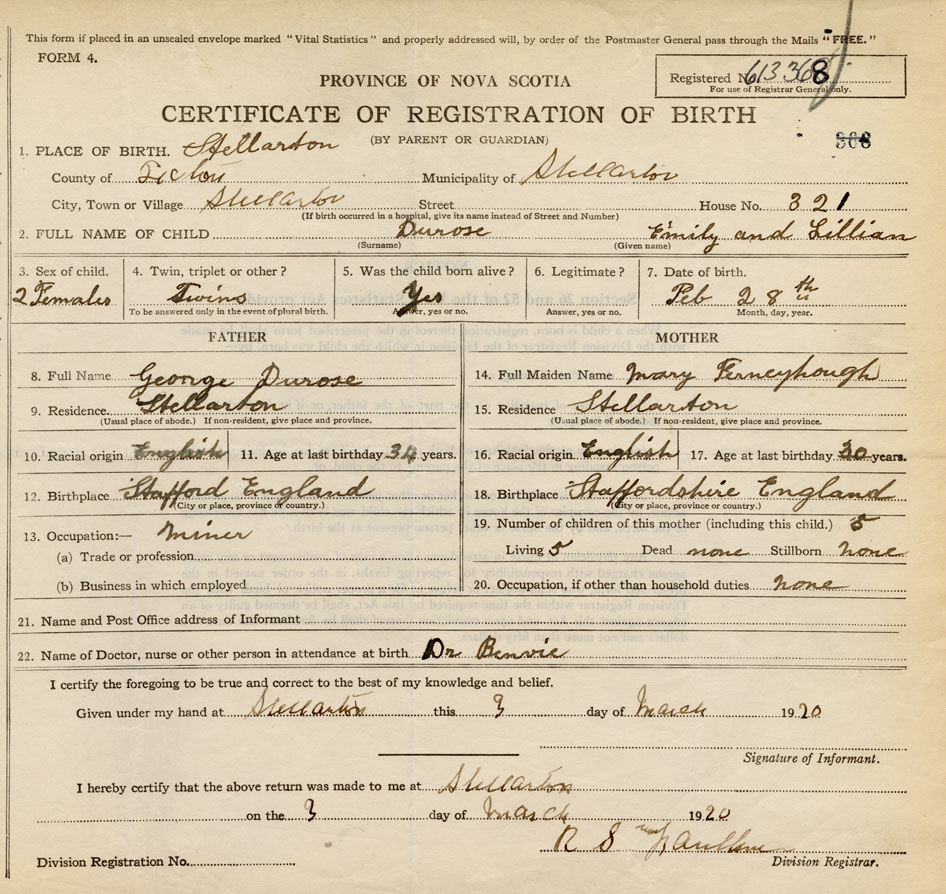 This form if placed in an unsealed envelope marked "Vital Statistics" and properly addressed will, by order of the Postmaster General pass through the Mails "FREE."
FORM 4.
Registered No. 613368
For use of Registrar General only.
PROVINCE OF NOVA SCOTIA
CERTIFICATE OF REGISTRATION OF BIRTH
(BY PARENT OR GUARDIAN)
368
1. PLACE OF BIRTH. Stellarton
County of Pictou Municipality of Stellarton
City, Town or Village Stellarton Street House No. 321
(If birth occurred in a hospital, give its name instead of Street and Number)
2. FULL NAME OF CHILD Durose Emily and Lillian
(Surname) (Given name)
3. Sex of child. 4. Twin, triplet or other? 5. Was the child born alive? 6. Legitimate? 7. Date of birth.
2 Females Twins Yes Feb 28th
To be answered only in the event of plural birth. Answer, yes or no. Answer, yes or no. Month, day, year.
FATHER MOTHER
8. Full Name George Durose 14. Full Maiden Name Mary Ferneyhough
9. Residence. Stellarton 15. Residence Stellarton
(Usual place of abode.) If non-resident, give place and province. (Usual place of abode.) If non-resident, give place and province.
10. Racial origin English 11. Age at last birthday 34 years. 16. Racial origin English 17. Age at last birthday 30 years.
12. Birthplace Stafford England 18. Birthplace Staffordshire England
(City or place, province or country.) (City or place, province or country.)
13. Occupation:— Miner 19. Number of children of this mother (including this child.) 5
(a) Trade or profession Living 5 Dead none Stillborn none
(b) Business in which employed 20. Occupation, if other than household duties none
21. Name and Post Office address of Informant
22. Name of Doctor, nurse or other person in attendance at birth Dr Benvie
I certify the foregoing to be true and correct to the best of my knowledge and belief.
Given under my hand at Stellarton this 3 day of March 1920
Signature of Informant.
I hereby certify that the above return was made to me at Stellarton
on the 3 day of March 1920
R S
Division Registration No. Division Registrar.